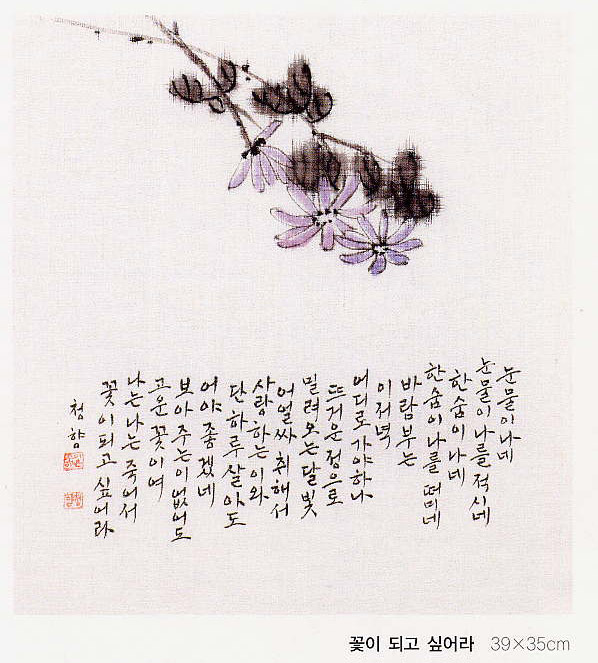 눈물이 나네
눈물이 나를 적시네
한숨이 나네
한숨이 나를 떠미네
바람 부는
이 저녁
어디로 가야하나
뜨거운 정으로
밀려오는 달빛
어얼싸 취해서
사랑하는 이와
단 하루 살아도
어야 좋겠네
보아주는 이 없어도
고운 꽃이여
나는 나는 죽어서
꽃이 되고 싶어라
청향
꽃이 되고 싶어라 39×35cm